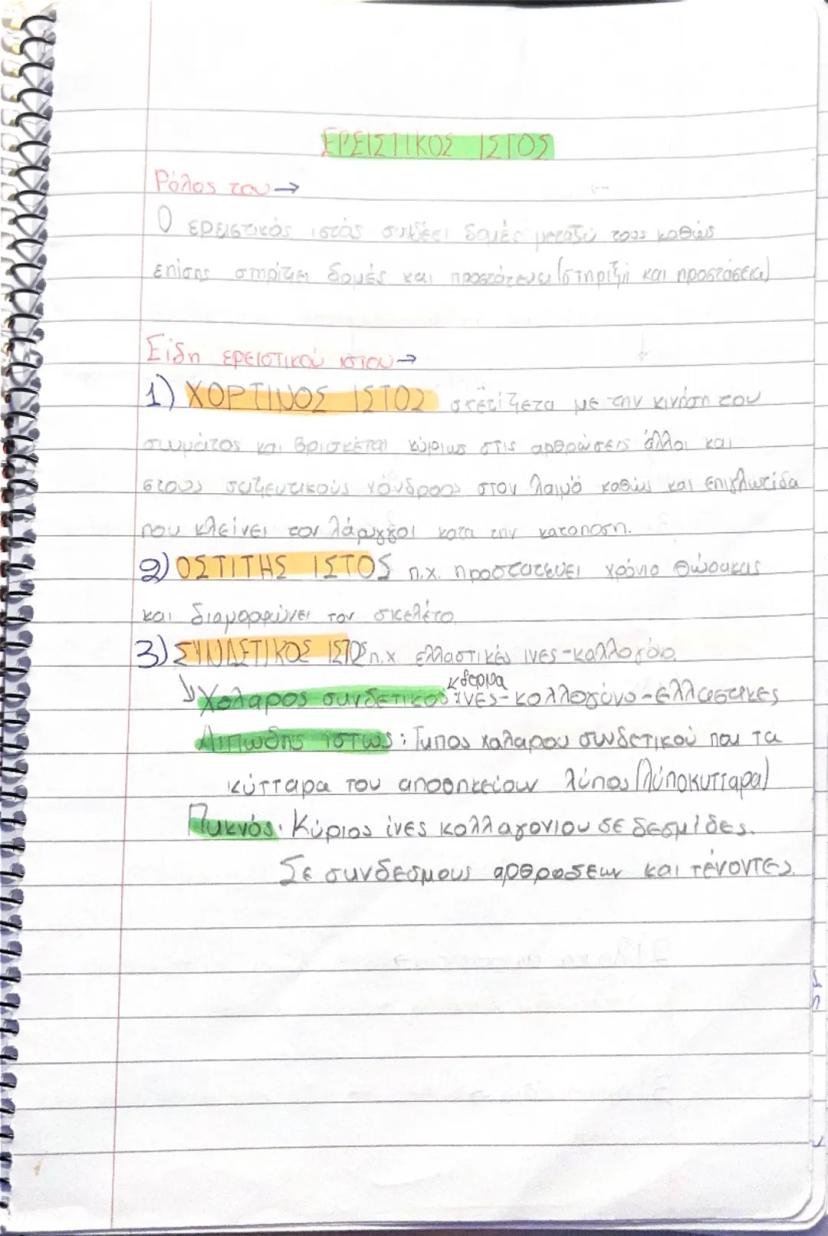 ΕΡΕΙΣΤΙΚΟΣ ΙΣΤΟΣ
Ρόλος του →
Ο ερειστικός ιστός συνδέει δομές μεταξύ τους καθώς
επίσης στηρίζει δομές και προστάτευει (στηριξή και προστάσεια)
Είδη ερειστικού ιστου →
1) ΧΟΡΤΙΝΟΣ ΙΣΤΟΣ σχετίζετα με την κινηση του
σωμάτος και βρισκεται κύριως στις αρθρώσεις άλλοι και
στους χόνδρους στον λαιμό καθώς και επιγλωτίδα
που κλείνει τον λάρυγγοι κατα την καταποση.
2) ΟΣΤΙΤΗΣ ΙΣΤΟΣ π.χ. προστατευει θώρακας
και διαμορφώνει τον σκελέτο
3) ΣΥΝΔΕΤΙΚΟΣ ΙΣΤΟΣ π.χ ελλαστικές ινες-κολλαγόνο
↳ Χαλαρος συνδετικος κ δερμα ΊΝΕΣ-κολλαγόνο-ελλαστικες
Λιπωδης ιστως: Τυπος χαλαρου συνδετικού που τα
κύτταρα του αποθηκείουν λίπος (λύποκυτταρα)
Πυκνός: Κύριος ίνες κολλαγονιου σε δεσμίδες.
Σε συνδεσμους αρθρωσεων και τένοντες.